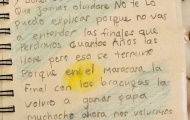 Que jamas olvidare No Te Lo
puedo explicar porque no vas
a entender las finales que
Perdimos cuantos Años las
llore pero eso se termino
Porque en el Maracana la
final con los brazucas la
volvio a ganar papa
muchachos ahora nos volvimos